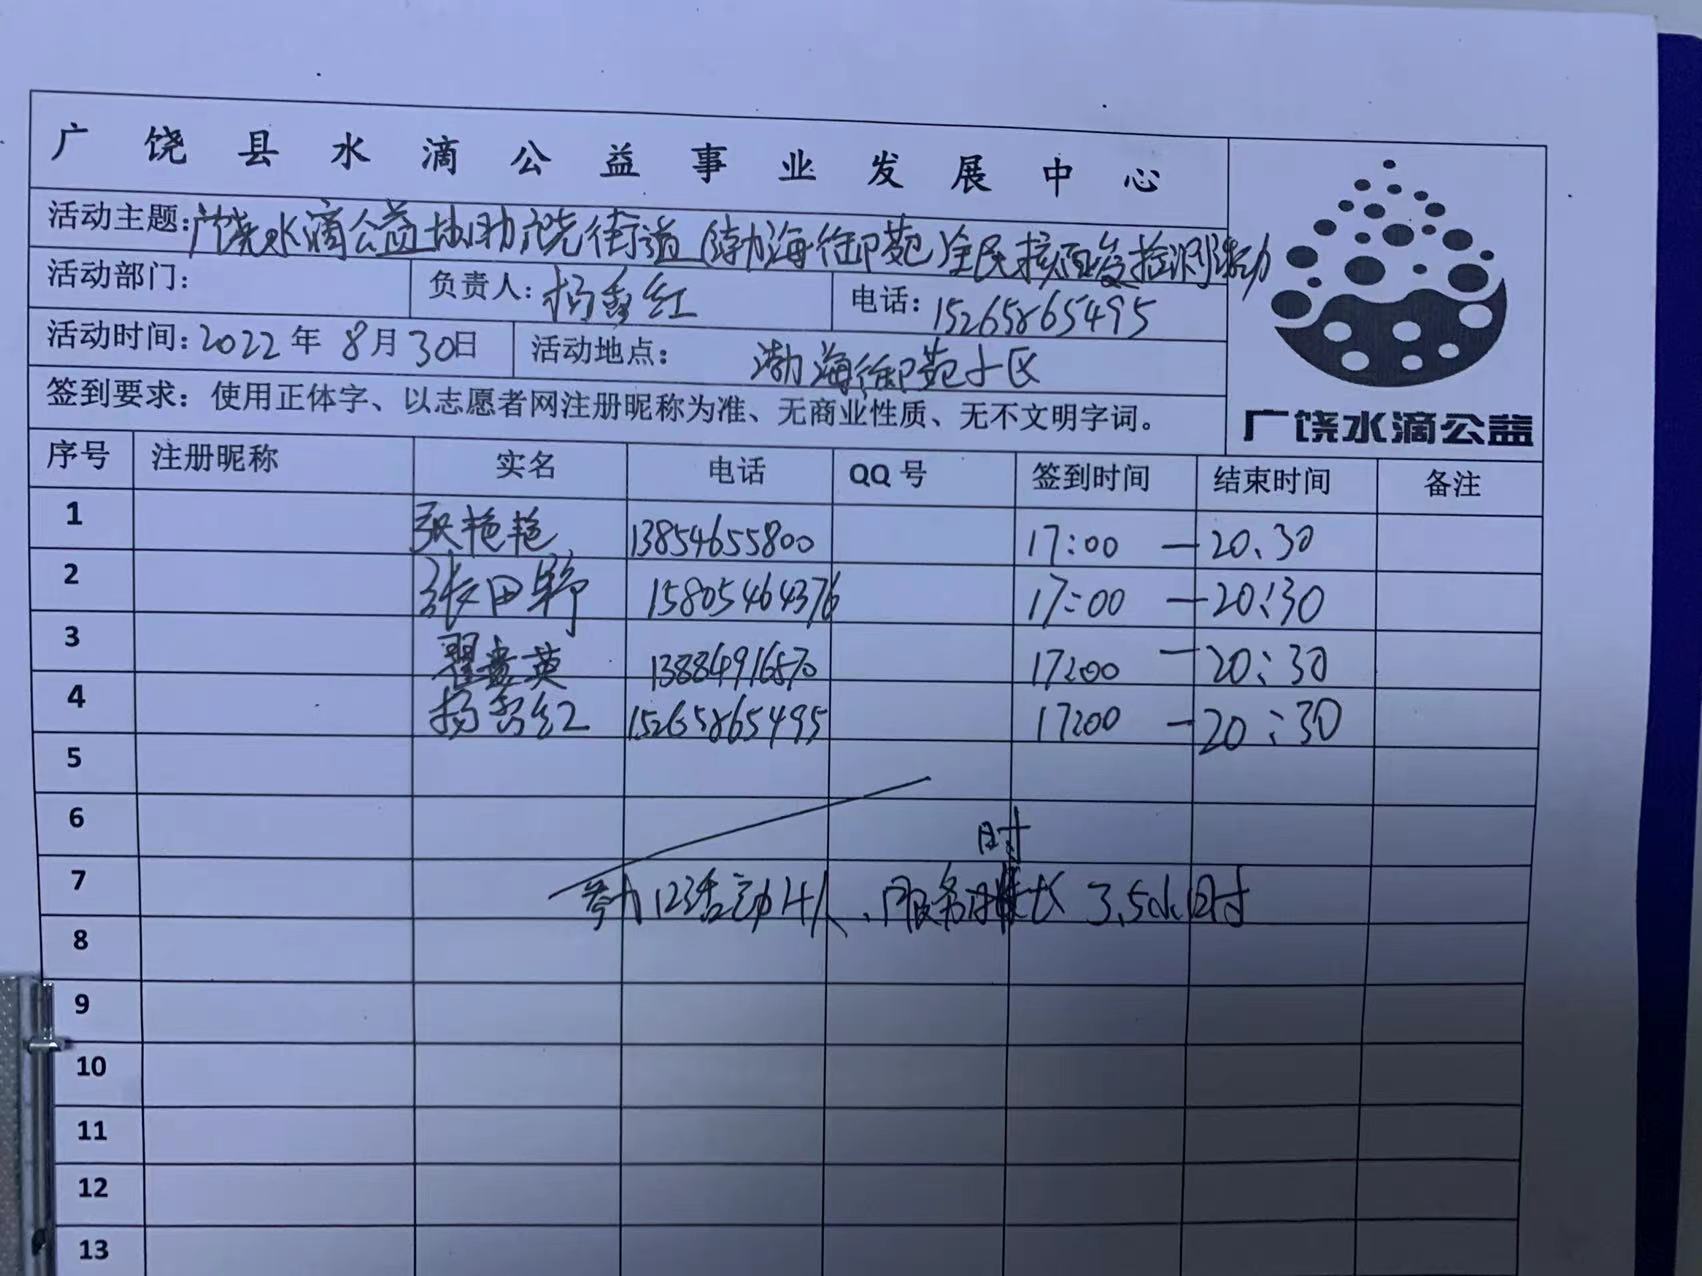 广饶县水滴公益事业发展中心
活动主题:广饶水滴公益协助广饶街道(渤海御苑)全民核酸检测活动
活动部门: 负责人:杨香红 电话:15265865495
活动时间:2022年8月30日 活动地点: 渤海御苑小区
签到要求:使用正体字、以志愿者网注册昵称为准、无商业性质、无不文明字词。
广饶水滴公益
序号 注册昵称 实名 电话 QQ号 签到时间 结束时间 备注
1 张艳艳 13854655800 17:00 —20.30
2 张田野 15805464376 17:00 —20:30
3 翟英 13884916570 17:00 —20:30
4 杨香红 15265865495 17:00 —20:30
5
6 时
7 参加123活动4人、服务时长3.5小时
8
9
10
11
12
13